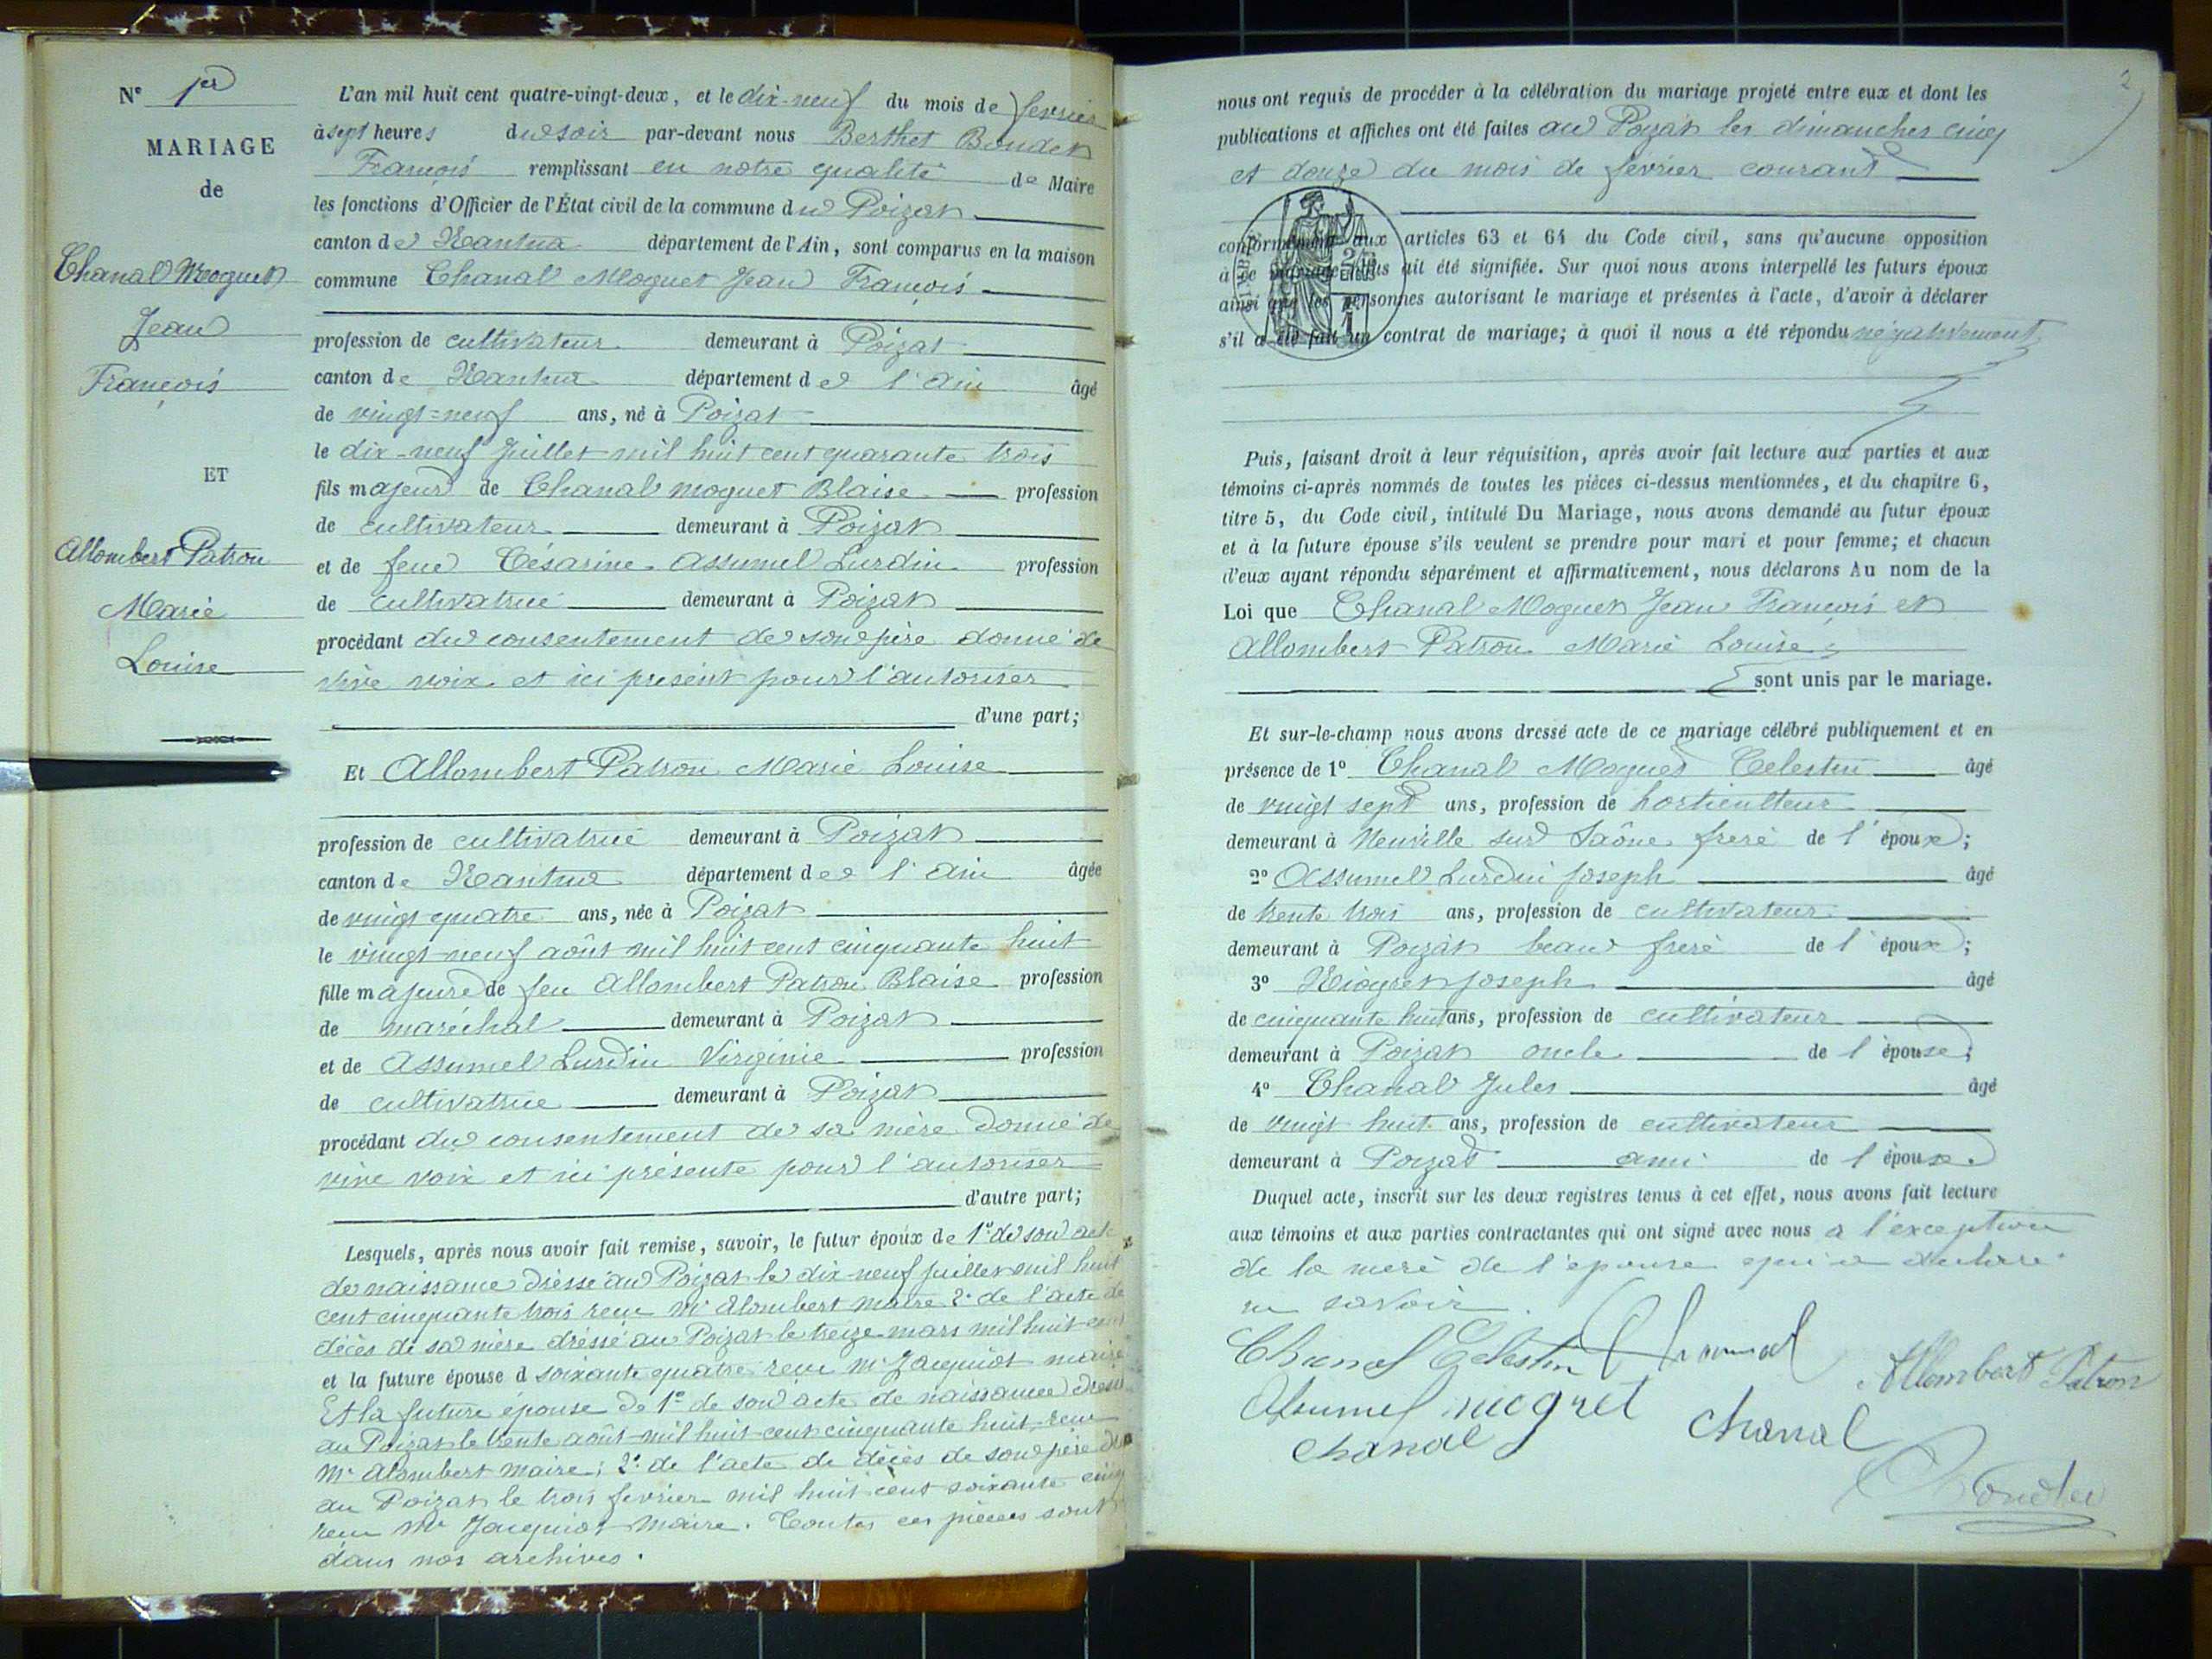 N° 1er
MARIAGE
de
Chanal Moquet
Jean
François
ET
Allombert Patrou
Marie
Louise
L'an mil huit cent quatre-vingt-deux, et le dix-neuf du mois de fevrier
à sept heures du soir par-devant nous Berthet Boudet
François remplissant en notre qualité de Maire
les fonctions d'Officier de l'État civil de la commune du Poizat
canton de Nantua département de l'Ain, sont comparus en la maison
commune Chanal Moquet Jean François
profession de cultivateur demeurant à Poizat
canton de Nantua département de l'ain âgé
de vingt=neuf ans, né à Poizat
le dix-neuf juillet mil huit cent quarante trois
fils majeur de Chanal moquet Blaise profession
de cultivateur demeurant à Poizat
et de feue Césarine Assumel Lurdin profession
de cultivatrice demeurant à Poizat
procédant du consentement de son père donné de
vive voix et ici présent pour l'autoriser
d'une part;
Et Allombert Patrou Marie Louise
profession de cultivatrice demeurant à Poizat
canton de Nantua département de l'ain âgée
de vingt quatre ans, née à Poizat
le vingt-neuf août mil huit cent cinquante huit
fille majeure de feu Allombert Patrou Blaise profession
de maréchal demeurant à Poizat
et de Assumel Lurdin Virginie profession
de cultivatrice demeurant à Poizat
procédant du consentement de sa mère donné de
vive voix et ici présente pour l'autoriser
d'autre part;
Lesquels, après nous avoir fait remise, savoir, le futur époux de 1° de son acte
de naissance dressé au Poizat le dix neuf juillet mil huit
cent cinquante trois reçu Mr Alombert maire 2° de l'acte de
décès de sa mère dressé au Poizat le treize mars mil huit cent
et la future épouse d soixante quatre reçu Mr Jacquiot maire
Et la future épouse de 1° de son acte de naissance dressé
au Poizat le trente août mil huit cent cinquante huit, reçu
Mr Alombert maire; 2° de l'acte de décès de son père
au Poizat le trois fevrier mil huit cent soixante cinq
reçu Mr Jacquiot maire. Toutes ces pièces sont
dans nos archives.
2
nous ont requis de procéder à la célébration du mariage projeté entre eux et dont les
publications et affiches ont été faites au Poizat les dimanches cinq
et douze du mois de fevrier courant
conformément aux articles 63 et 64 du Code civil, sans qu'aucune opposition
à ce mariage nous ait été signifiée. Sur quoi nous avons interpellé les futurs époux
ainsi que les personnes autorisant le mariage et présentes à l'acte, d'avoir à déclarer
s'il a été fait un contrat de mariage; à quoi il nous a été répondu négativement
Puis, faisant droit à leur réquisition, après avoir fait lecture aux parties et aux
témoins ci-après nommés de toutes les pièces ci-dessus mentionnées, et du chapitre 6,
titre 5, du Code civil, intitulé Du Mariage, nous avons demandé au futur époux
et à la future épouse s'ils veulent se prendre pour mari et pour femme; et chacun
d'eux ayant répondu séparément et affirmativement, nous déclarons Au nom de la
Loi que Chanal Moquet Jean François et
Allombert Patrou Marie Louise
sont unis par le mariage.
Et sur-le-champ nous avons dressé acte de ce mariage célébré publiquement et en
présence de 1° Chanal Moquet Celestin âgé
de vingt sept ans, profession de horticulteur
demeurant à Neuville sur Saône frere de l'époux;
2° Assumel Lurdin Joseph âgé
de trente trois ans, profession de cultivateur
demeurant à Poizat beau frere de l'époux;
3° Niogret Joseph âgé
de cinquante huit ans, profession de cultivateur
demeurant à Poizat oncle de l'épouse;
4° Chanal Jules âgé
de vingt huit ans, profession de cultivateur
demeurant à Poizat ami de l'époux.
Duquel acte, inscrit sur les deux registres tenus à cet effet, nous avons fait lecture
aux témoins et aux parties contractantes qui ont signé avec nous à l'exception
de la mere de l'épouse qui a declaré
ne savoir.
Chanal Celestin Assumel Allombert Patron
niogret
chanal chanal
Boudet